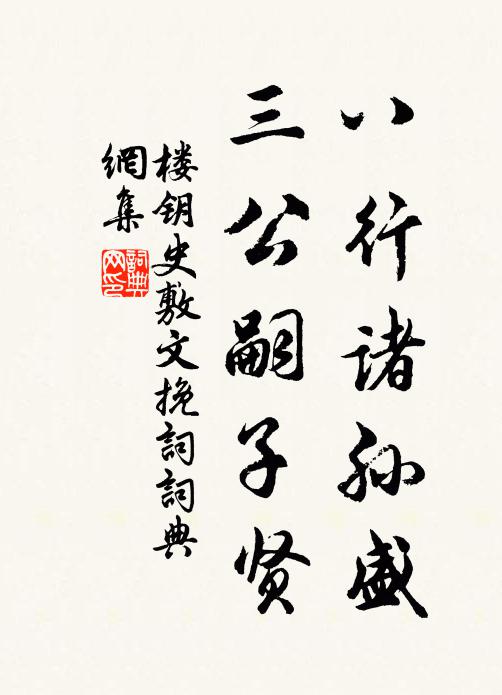 八行诸孙盛
三公嗣子贤
楼钥史敷文挽詞詞典
網集
詞典
网印